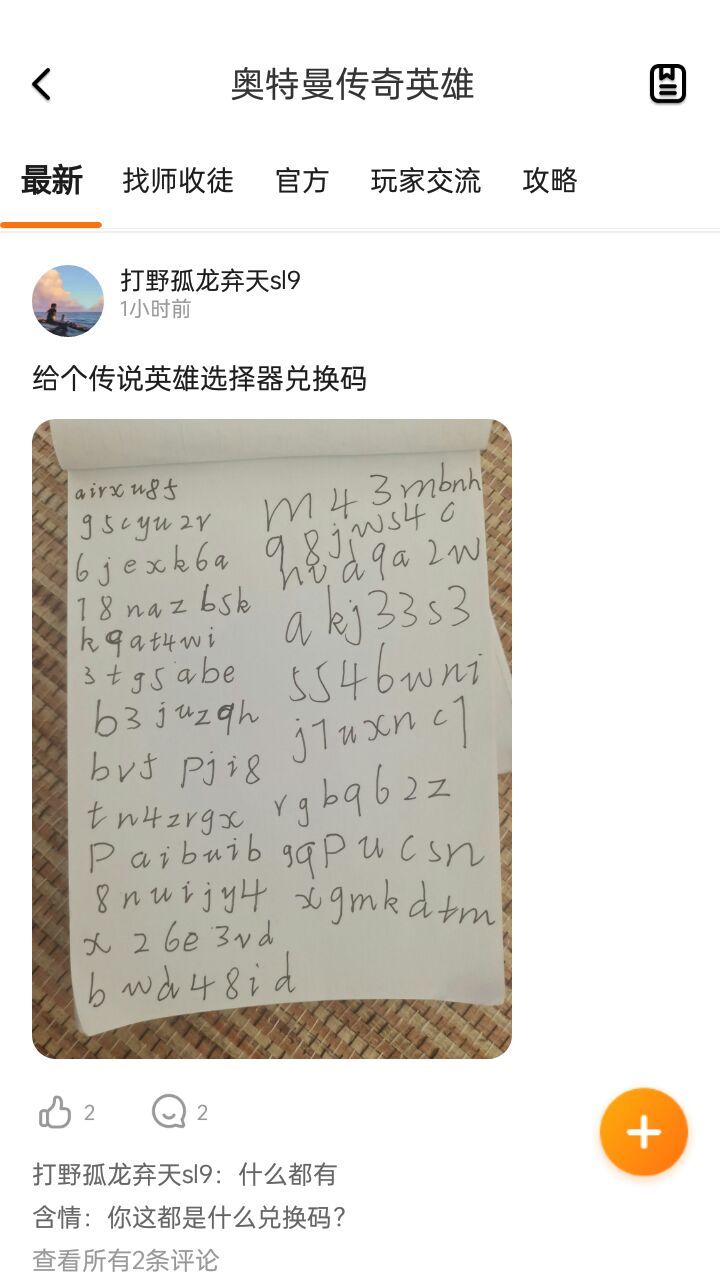 奥特曼传奇英雄
最新 找师收徒 官方 玩家交流 攻略
打野孤龙弃天sl9
1小时前
给个传说英雄选择器兑换码
airxu85
g5cyu2r
6jexk6a
78nazb5k
k9at4wi
3tg5abe
b3juzqh
bv5pji8
tn4zrgx
paibuib
8nuijy4
x26e3vd
bwd48id
m43mbnh
q8jws4c
hvdqa2w
akj33s3
5546wni
j7uxnc7
rgbq6zz
gqpucsn
xgmkdtm
2 2
打野孤龙弃天sl9：什么都有
含情：你这都是什么兑换码？
查看所有2条评论